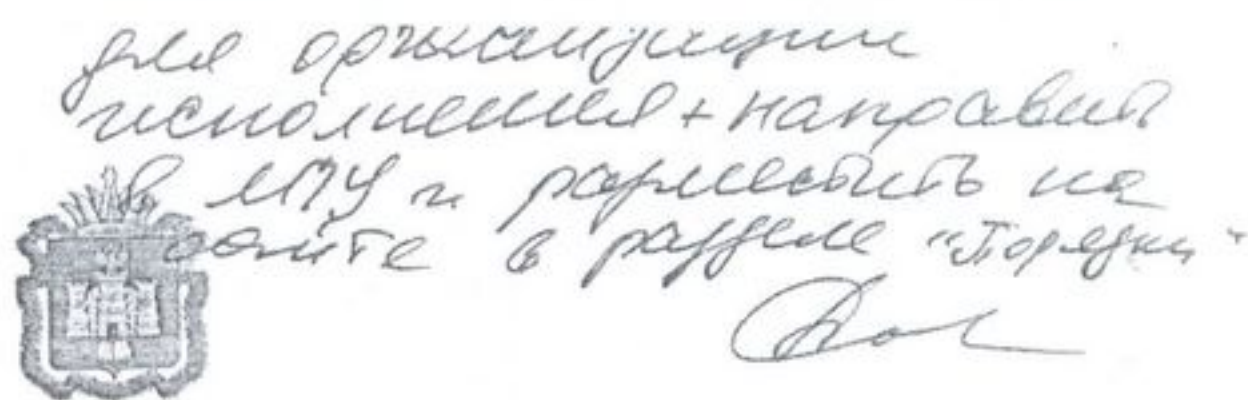 для организации
исполнения + направить
в ЛПУ и разместить на
сайте в разделе "Порядки"